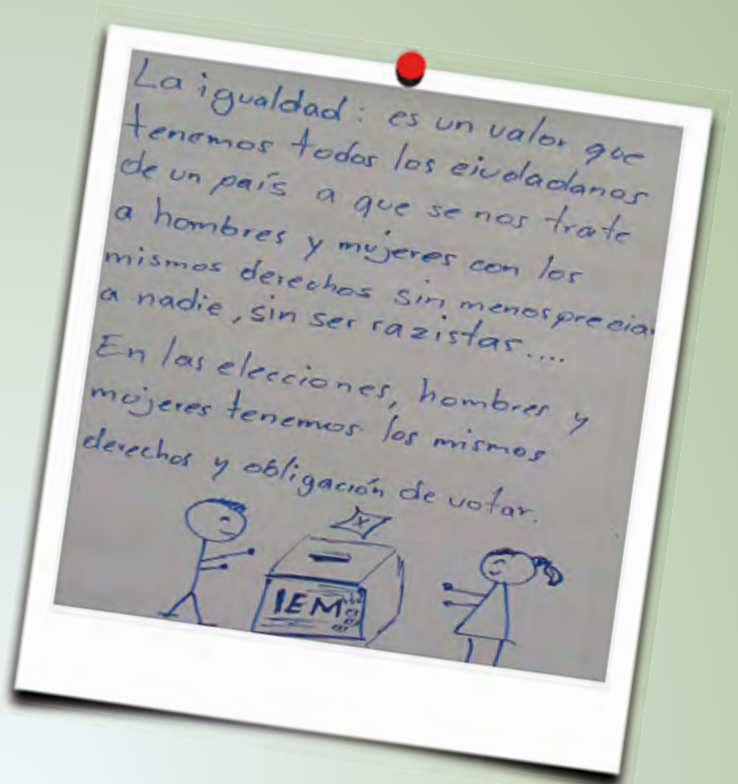 La igualdad: es un valor que
tenemos todos los ciudadanos
de un país a que se nos trate
a hombres y mujeres con los
mismos derechos sin menospreciar
a nadie, sin ser razistas....
En las elecciones, hombres y
mujeres tenemos los mismos
derechos y obligación de votar.
X
IEM